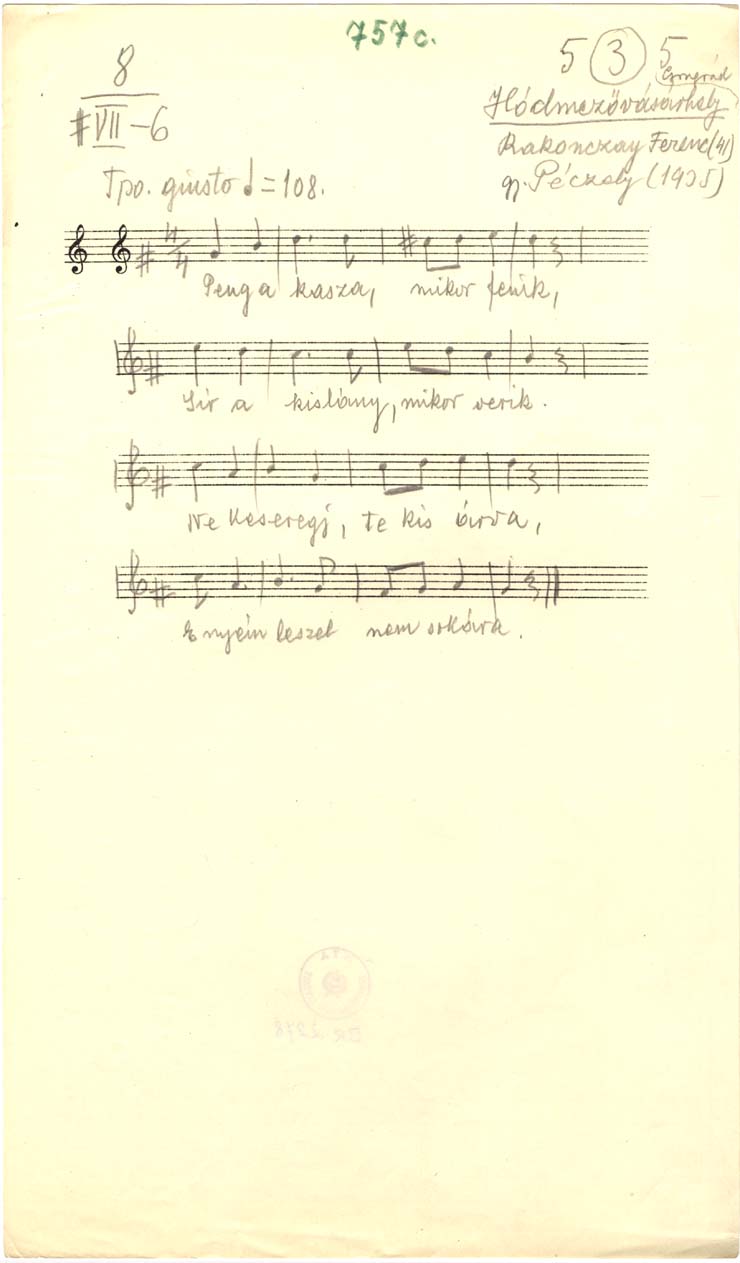 757c.
8
5 (3) 5
Csongrád
#VII-6
Hódmezővásárhely
Rakonczay Ferenc (41)
Tpo. giusto ♩=108.
gy. Péczely (1935)
4/4
Peng a kasza, mikor fenik,
Sír a kislány, mikor verik.
Ne keseregj, te kis árva,
Enyéin leszel nem sokára.